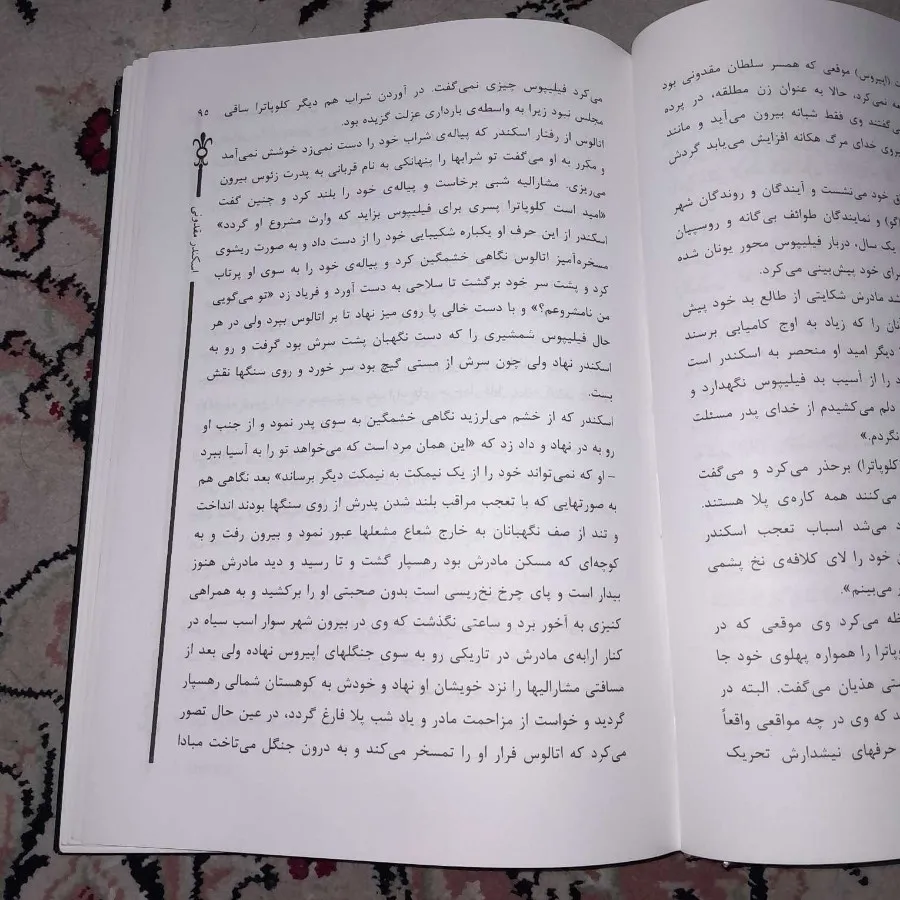 ت (اپیروس) موقعی که همسر سلطان مقدونی بود
مه نمی‌کرد، حالا به عنوان زن مطلقه، در پرده
ی‌گفتند وی فقط شبانه بیرون می‌آید و مانند
یروی خدای مرگ هکاته افزایش می‌یابد گردش
ق خود می‌نشست و آیندگان و روندگان شهر
اگر) و نمایندگان طوائف بی‌گانه و روسپیان
یک سال، دربار فیلیپوس محور یونان شده
برای خود پیش‌بینی می‌کرد.
شد مادرش شکایتی از طالع بد خود پیش
نان را که زیاد به اوج کامیابی برسند
دیگر امید او منحصر به اسکندر است
د را از آسیب بد فیلیپوس نگهدارد و
دلم می‌کشیدم از خدای پدر مسئلت
نگردم.»
کلوپاترا) برحذر می‌کرد و می‌گفت
می‌کنند همه کاره‌ی پلا هستند.
د می‌شد اسباب تعجب اسکندر
ن خود را لای کلافه‌ی نخ پشمی
ر می‌بینم».
ظه می‌کرد وی موقعی که در
وپاترا را همواره پهلوی خود جا
ستی هذیان می‌گفت. البته در
د که وی در چه مواقعی واقعاً
حرفهای نیشدارش تحریک
۹۵
اسکندر مقدونی
می‌کرد فیلیپوس چیزی نمی‌گفت. در آوردن شراب هم دیگر کلوپاترا ساقی
مجلس نبود زیرا به واسطه‌ی بارداری عزلت گزیده بود.
اتالوس از رفتار اسکندر که پیاله‌ی شراب خود را دست نمی‌زد خوشش نمی‌آمد
و مکرر به او می‌گفت تو شرابها را پنهانکی به نام قربانی به پدرت زئوس بیرون
می‌ریزی. مشارالیه شبی برخاست و پیاله‌ی خود را بلند کرد و چنین گفت
«امید است کلوپاترا پسری برای فیلیپوس بزاید که وارث مشروع او گردد»
اسکندر از این حرف او یکباره شکیبایی خود را از دست داد و به صورت ریشوی
مسخره‌آمیز اتالوس نگاهی خشمگین کرد و پیاله‌ی خود را به سوی او پرتاب
کرد و پشت سر خود برگشت تا سلاحی به دست آورد و فریاد زد «تو می‌گویی
من نامشروعم؟» و با دست خالی پا روی میز نهاد تا بر اتالوس بپرد ولی در هر
حال فیلیپوس شمشیری را که دست نگهبان پشت سرش بود گرفت و رو به
اسکندر نهاد ولی چون سرش از مستی گیچ بود سر خورد و روی سنگها نقش
بست.
اسکندر که از خشم می‌لرزید نگاهی خشمگین به سوی پدر نمود و از جنب او
رو به در نهاد و داد زد که «این همان مرد است که می‌خواهد تو را به آسیا ببرد
- او که نمی‌تواند خود را از یک نیمکت به نیمکت دیگر برساند» بعد نگاهی هم
به صورتهایی که با تعجب مراقب بلند شدن پدرش از روی سنگها بودند انداخت
و تند از صف نگهبانان به خارج شعاع مشعلها عبور نمود و بیرون رفت و به
کوچه‌ای که مسکن مادرش بود رهسپار گشت و تا رسید و دید مادرش هنوز
بیدار است و پای چرخ نخ‌ریسی است بدون صحبتی او را برکشید و به همراهی
کنیزی به آخور برد و ساعتی نگذشت که وی در بیرون شهر سوار اسب سیاه در
کنار ارابه‌ی مادرش در تاریکی رو به سوی جنگلهای اپیروس نهاده ولی بعد از
مسافتی مشارالیها را نزد خویشان او نهاد و خودش به کوهستان شمالی رهسپار
گردید و خواست از مزاحمت مادر و یاد شب پلا فارغ گردد، در عین حال تصور
می‌کرد که اتالوس فرار او را تمسخر می‌کند و به درون جنگل می‌تاخت مبادا